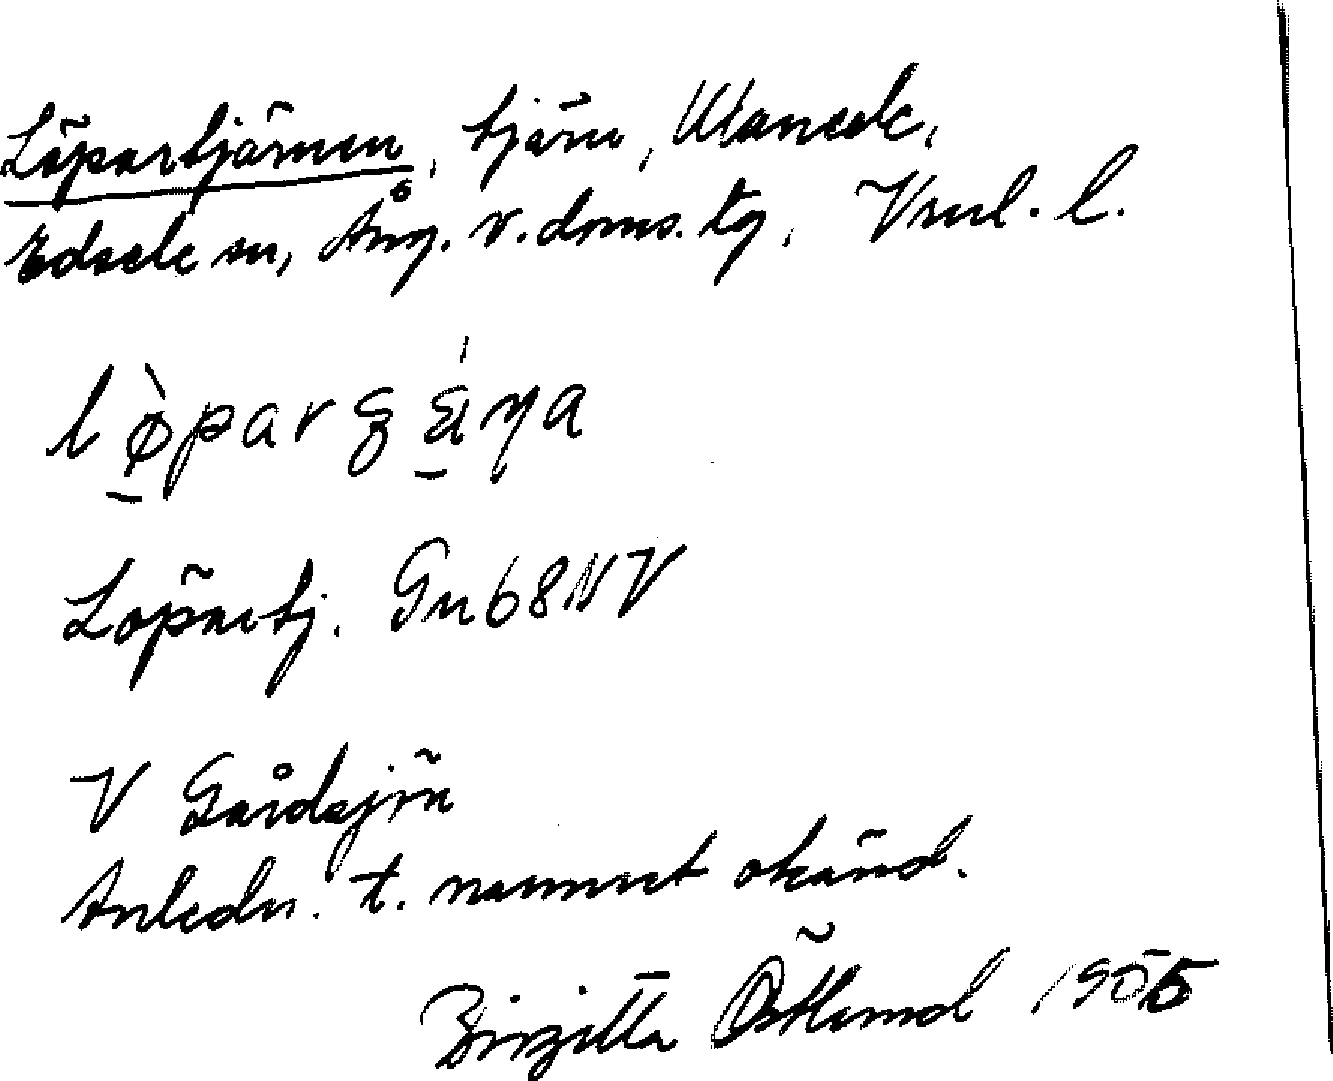 Löpartjärnen, tjärn, Ulanede,
Edsele sn, Ång. v. doms. tg, Vnl. l.
lø̀parʒä́ɳa
Löpartj. Gn 68 NV
V Gårdsjön
Anledn. t. namnet okänd.
Birgitta Östlund 1955